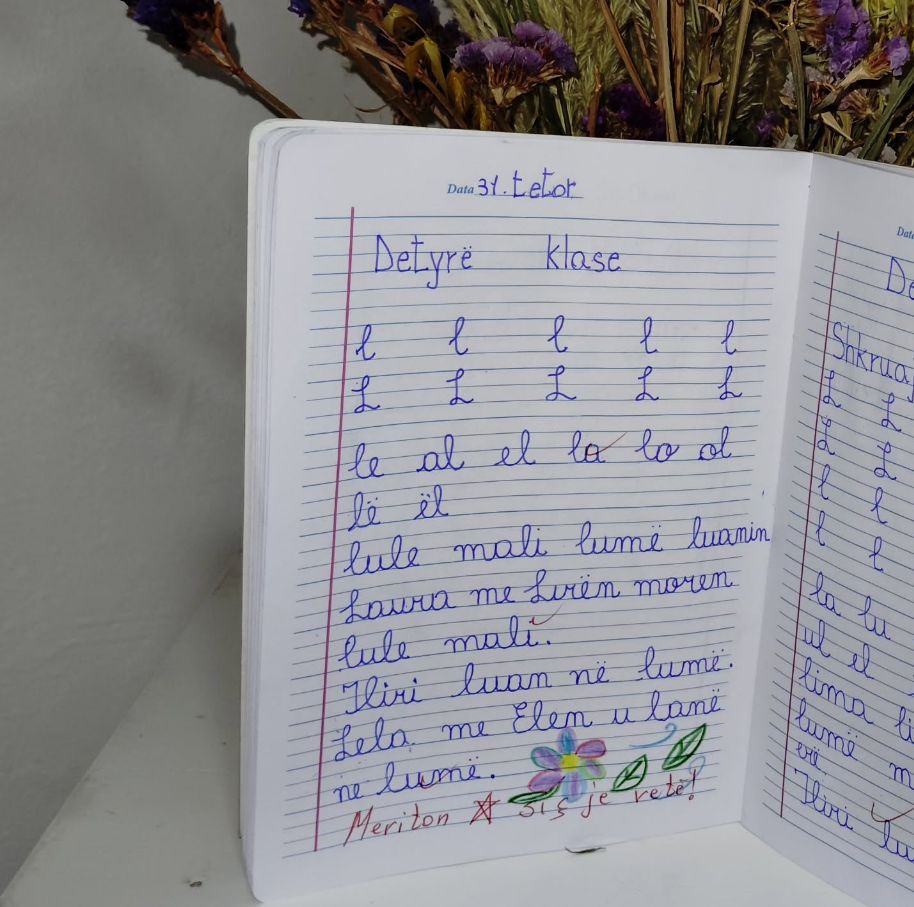 Data 31. tetor
Detyrë klase
l l l l l
L L L L L
le al el la lo ol
lë ël
lule mali lumë luanin
Laura me Lirën moren
lule mali.
Iliri luan në lumë.
Lela me Elem u lanë
ne lumë.
Meriton si ç je vetë!
Data
Shkruaj
L L
L L
l l
l l
la lu
ul el
lima
lumë
erë
Iliri